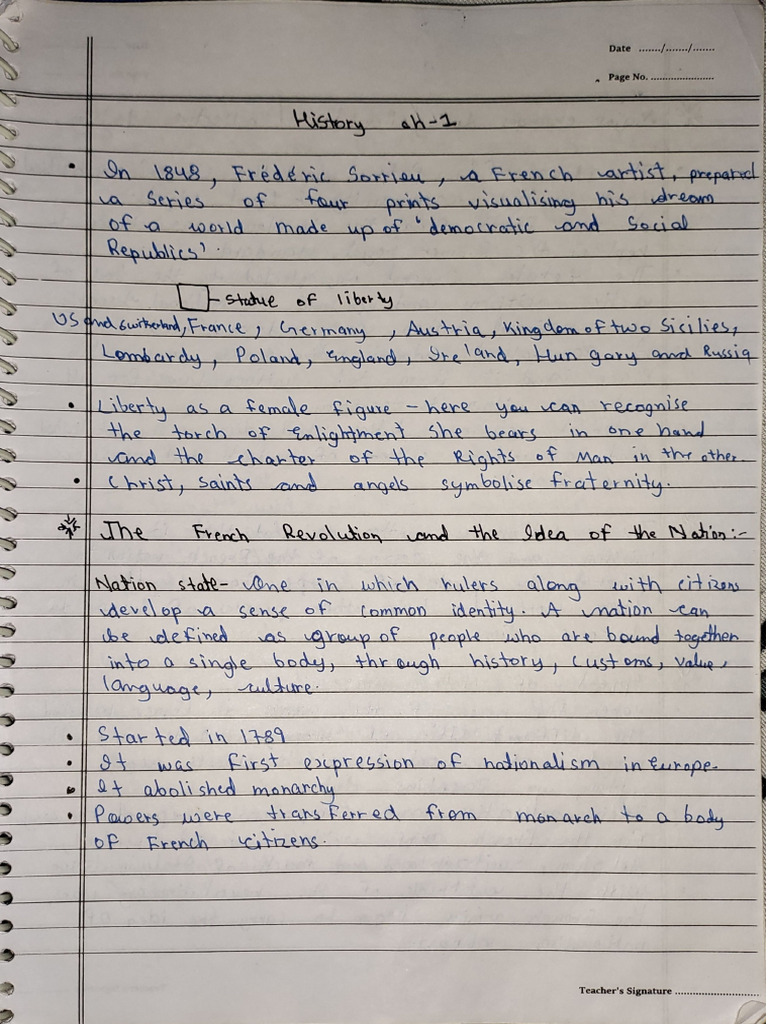 Date ......./......./.......
Page No. ......................
History ch-1
• In 1848, Frédéric Sorrieu, a French artist, prepared
a series of four prints visualising his dream
of a world made up of 'democratic and Social
Republics'.
statue of liberty
US and Switzerland, France, Germany, Austria, Kingdom of two Sicilies,
Lombardy, Poland, England, Ireland, Hungary and Russia
• Liberty as a female figure - here you can recognise
the torch of Enlightment she bears in one hand
and the charter of the Rights of Man in the other.
• Christ, saints and angels symbolise fraternity.
The French Revolution and the Idea of the Nation:-
Nation state- One in which rulers along with citizens
develop a sense of common identity. A nation can
be defined as group of people who are bound together
into a single body, through history, customs, value,
language, culture.
• Started in 1789
• It was first expression of nationalism in Europe.
• It abolished monarchy
• Powers were transferred from monarch to a body
of French citizens.
Teacher's Signature ............................